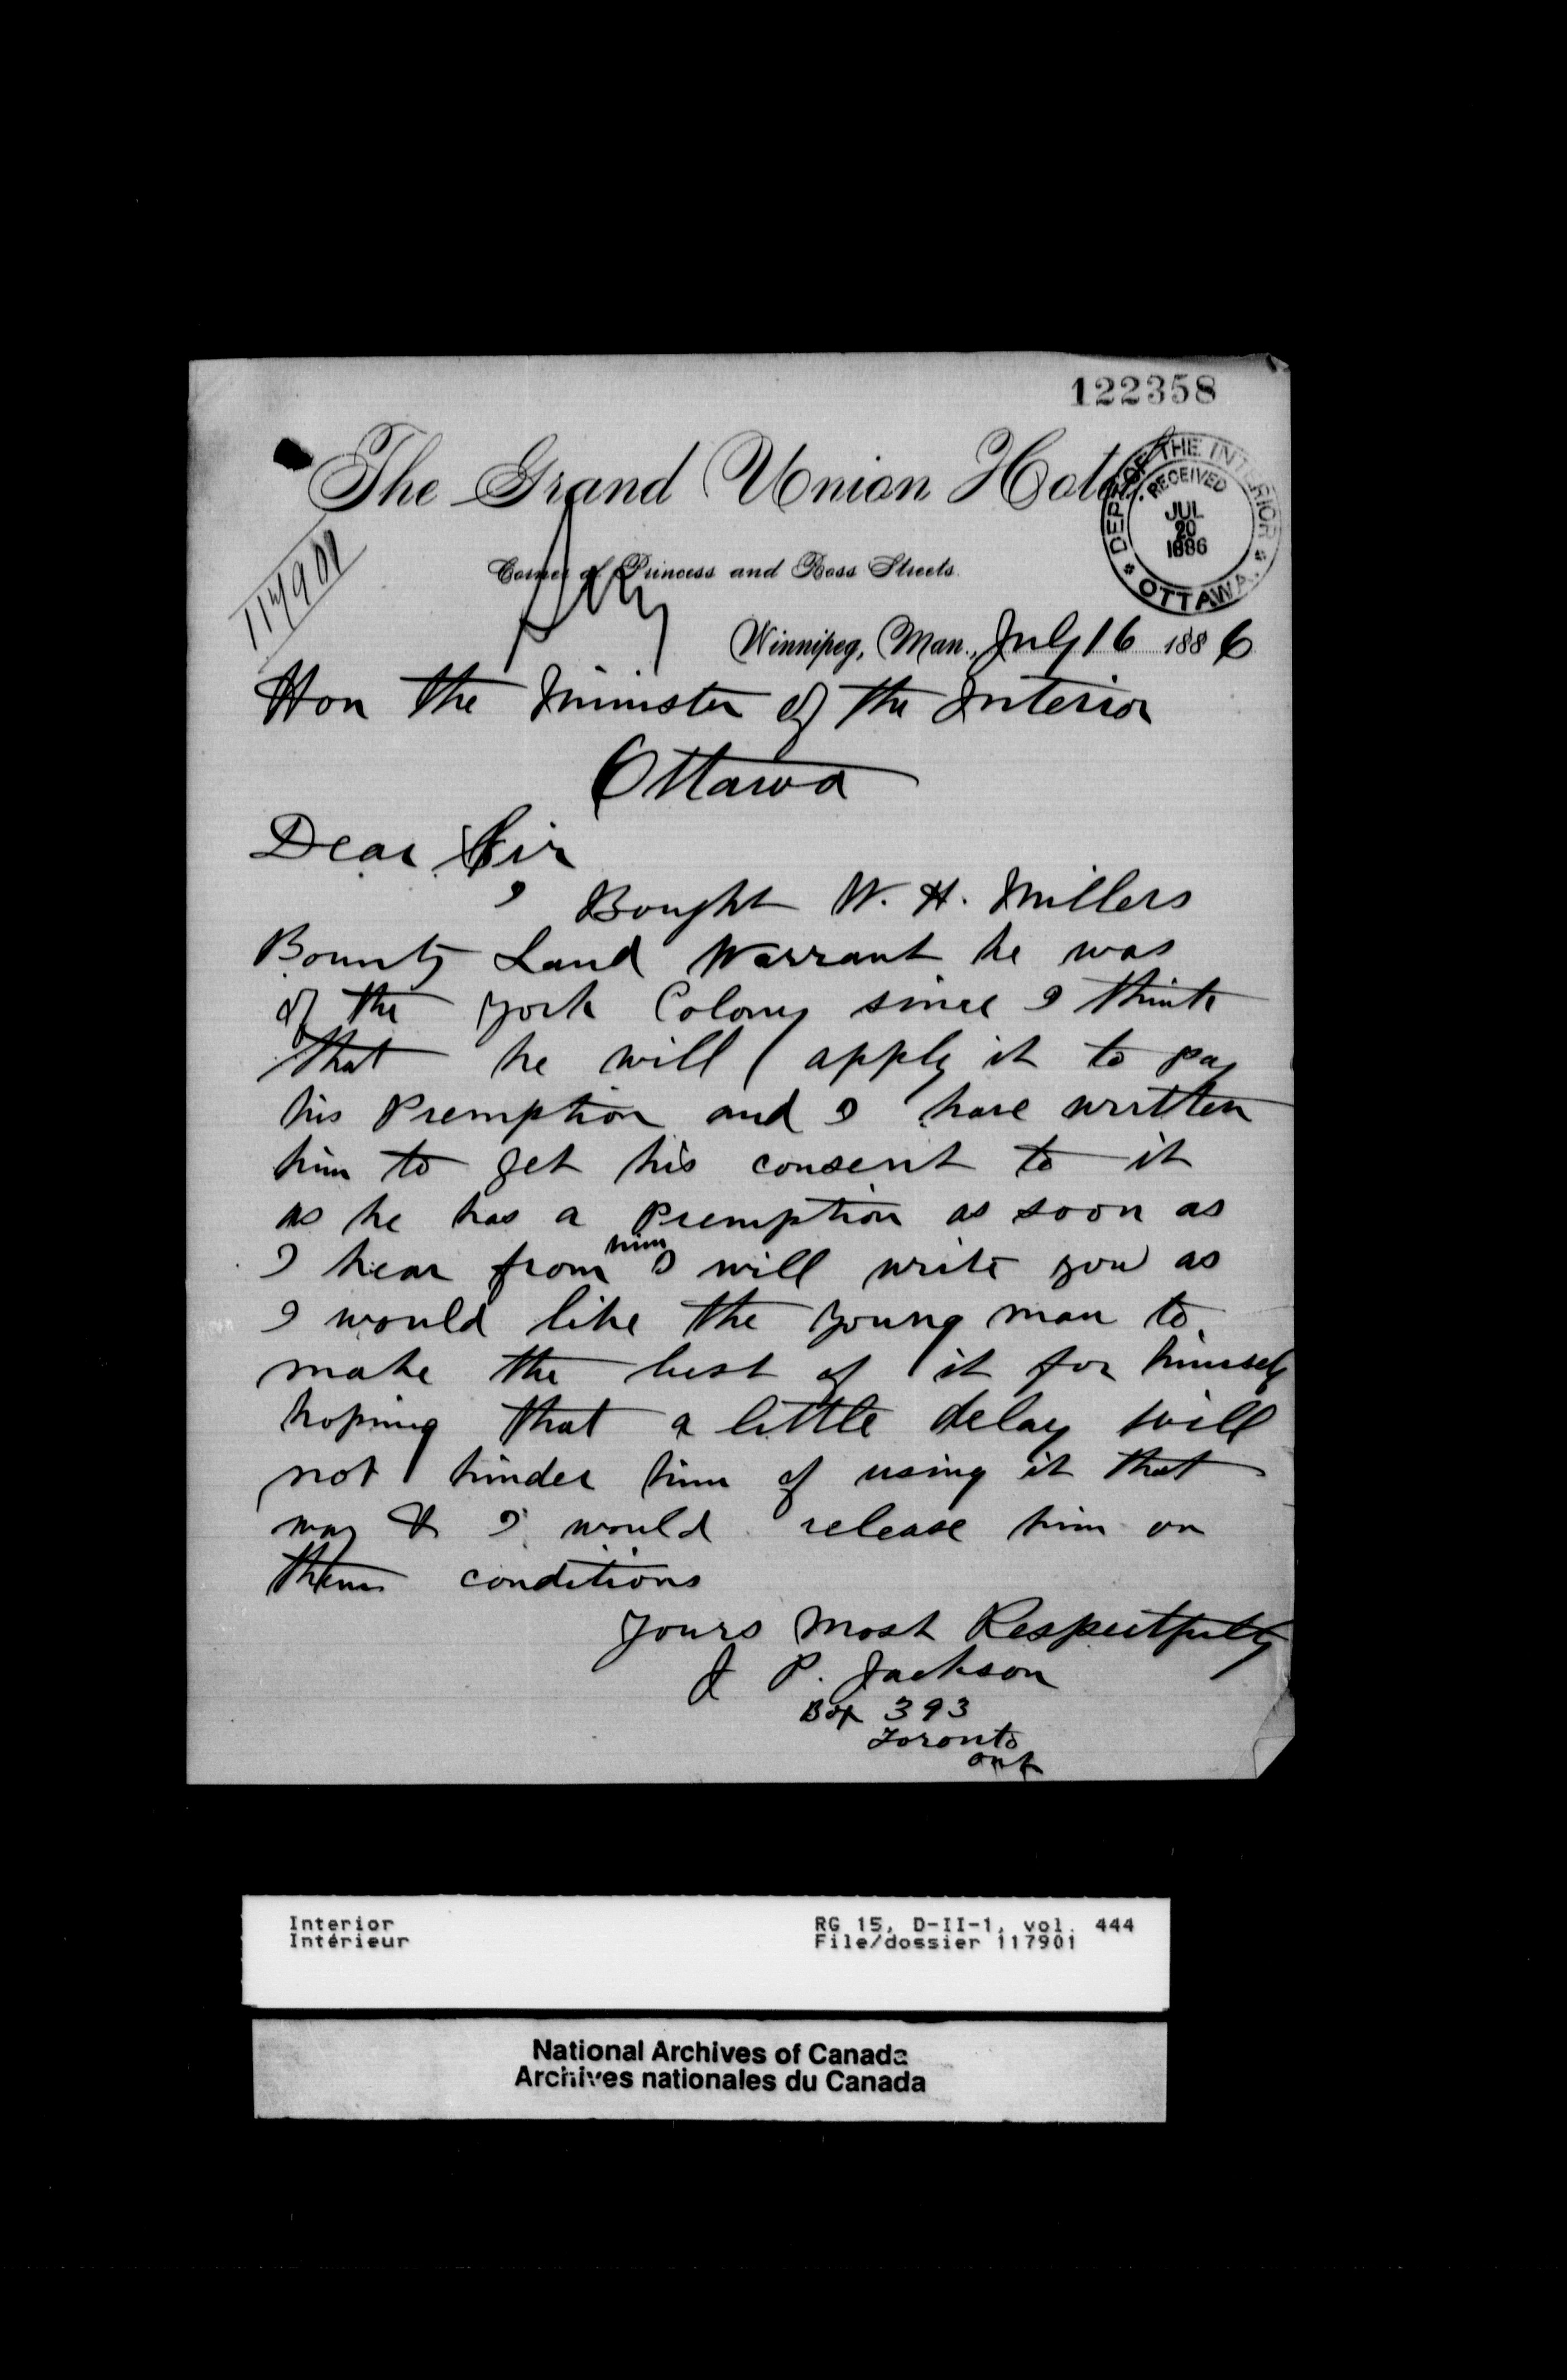 122358
The Grand Union Hotel
DEPT OF THE INTERIOR
RECEIVED
JUL
20
1886
OTTAWA.
117901
Corner of Princess and Ross Streets.
Winnipeg, Man., July 16 1886
Hon the Minister of the Interior
Ottawa
Dear Sir
I Bought W. H. Millers
Bounty Land Warrant he was
of the York Colony since I think
that he will apply it to pay
his Premption and I have written
him to get his consent to it
as he has a Premption as soon as
I hear from him I will write you as
I would like the young man to
make the best of it for himself
hoping that a little delay will
not hinder him of using it that
way & I would release him on
them conditions
Yours Most Respectfully
J P. Jackson
Box 393
Toronto
Ont
Interior
Intérieur
RG 15, D-II-1, vol. 444
File/dossier 117901
National Archives of Canada
Archives nationales du Canada